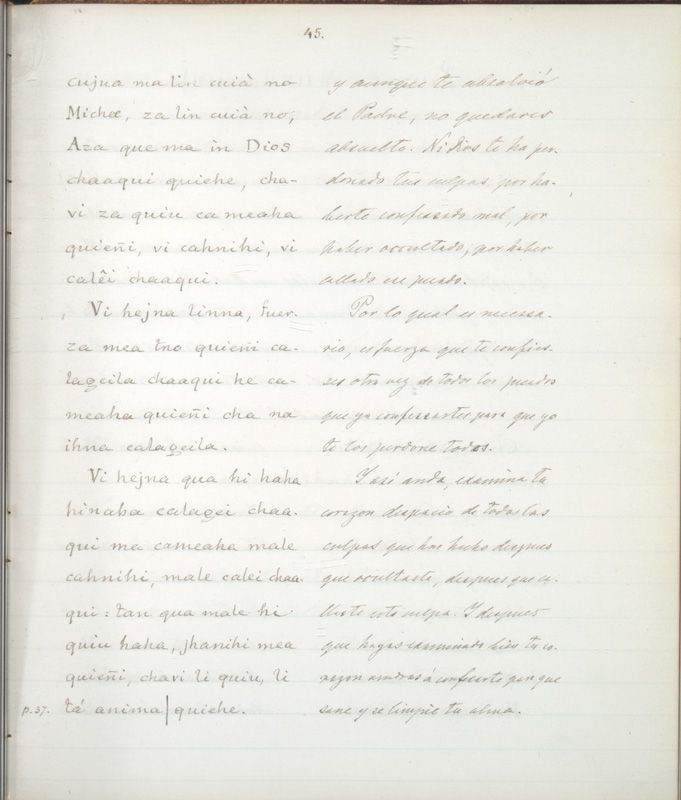 45.
cujua ma lin cuià no
Michee, za lin cuià no,
Aza que ma in Dios
chaaqui quiehe, cha-
vi za quiu ca meaha
quieñi, vi cahnihi, vi
calêi chaaqui.
Vi hejna linna, fuer-
za mea tno quieñi ca-
lageila chaaqui he ca-
meaha quieñi cha na
ihna calageila.
Vi hejna qua hi haha
hinaba calagei chaa-
qui ma cameaha male
cahnihi, male calei chaa-
qui: tan qua male hi
quiu haha, jhanihi mea
quieñi, chavi li quiu, li
p.37. tá anima | quiehe.
y aunque te absolvió
el Padre, no quedares
absuelto. Ni Dios te ha per-
donado tus culpas por ha-
berte confesado mal, por
haber occultado, por haber
callado un pecado.
Por lo qual es necessa-
rio, es fuerza que te confies-
ses otra vez de todos los pecados
que ya confessastes para que yo
te los perdone todos.
Y asi anda, examina tu
corazon despacio de todas las
culpas que has hecho despues
que ocultaste, despues que ca-
llaste esta culpa. Y despues
que hayas examinado bien tu co-
razon vendras á confesarte para que
sane y se limpie tu alma.